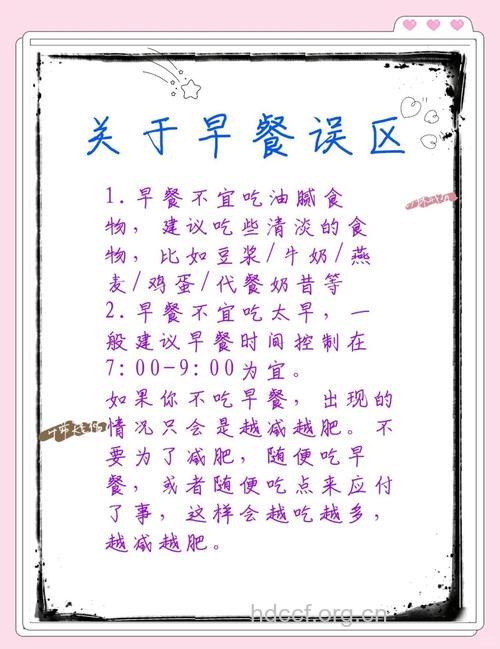 关于早餐误区
1.早餐不宜吃油腻食
物，建议吃些清淡的食
物，比如豆浆/牛奶/燕
麦/鸡蛋/代餐奶昔等
2.早餐不宜吃太早，一
般建议早餐时间控制在
7:00-9:00为宜。
如果你不吃早餐，出现的
情况只会是越减越肥。不
要为了减肥，随便吃早
餐，或者随便吃点来应付
了事，这样会越吃越多，
越减越肥。
hdccf.org.cn